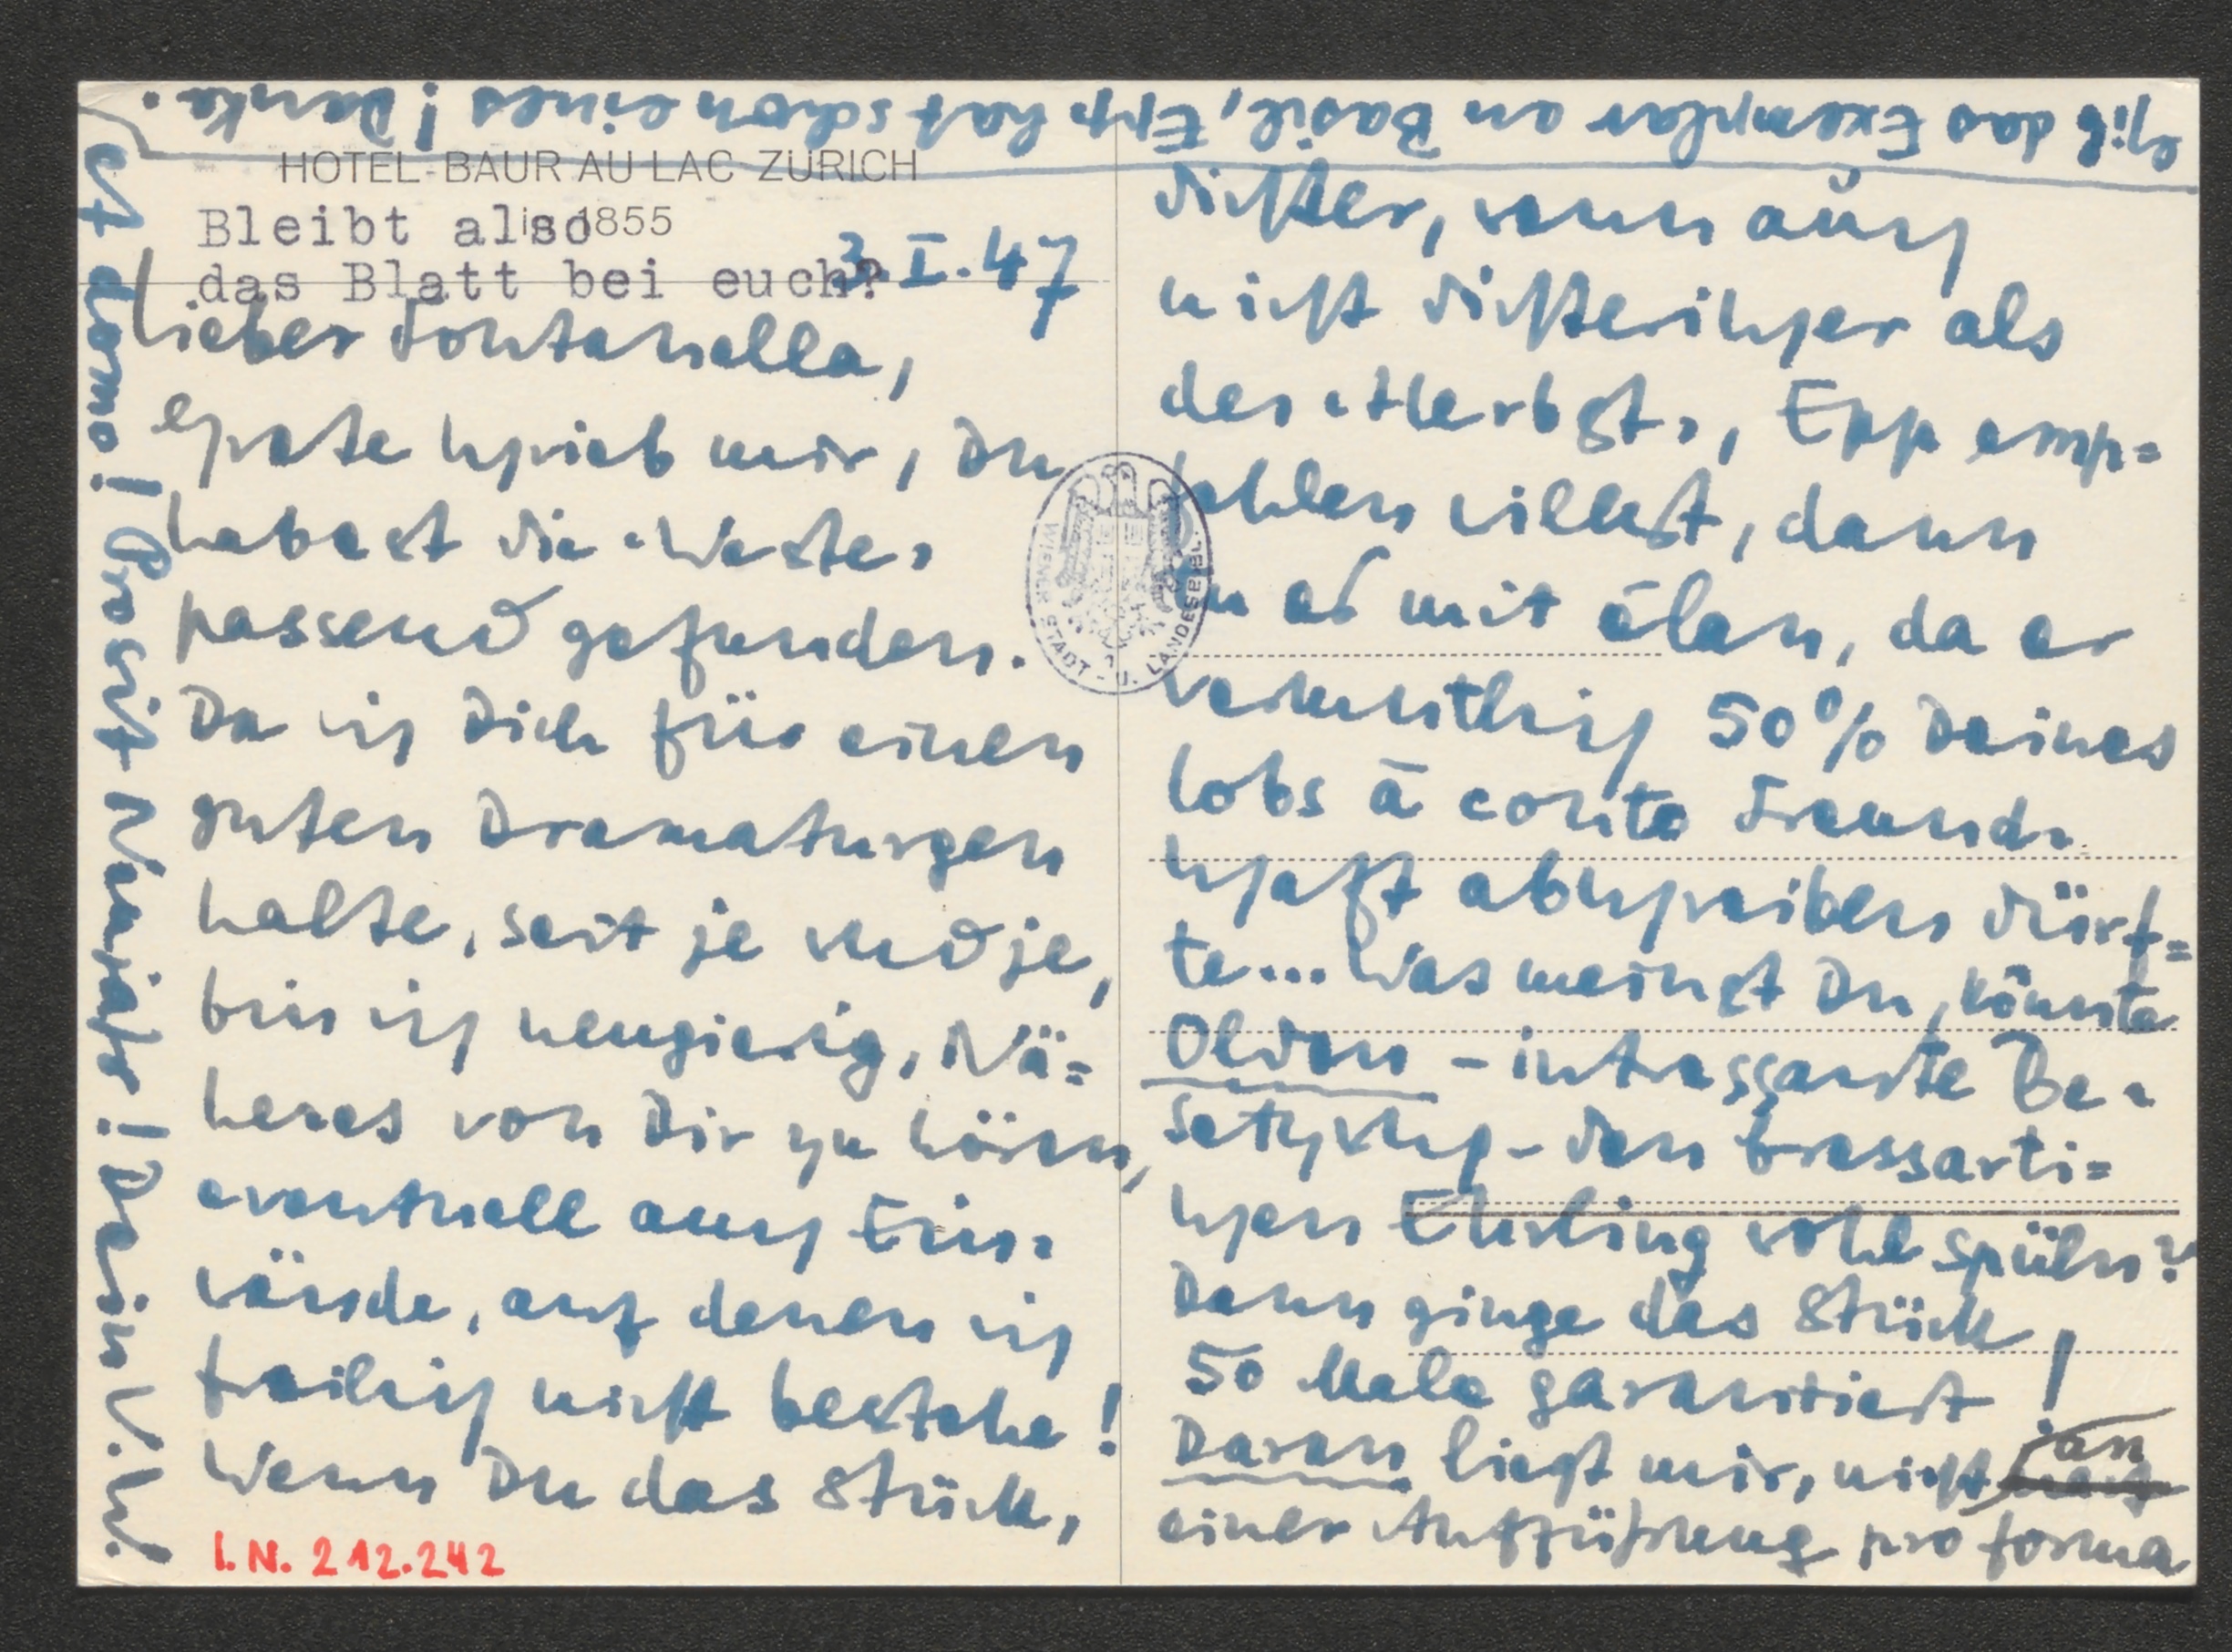 HOTEL-BAUR AU LAC ZÜRICH
in 1855
Bleibt also
das Blatt bei euch?
3.I.47
Lieber Fontanella,
Grete schrieb mir, Du
habest die "Weste"
passend gefunden.
Da ich Dich für einen
guten Dramaturgen
halte, seit je und je,
bin ich neugierig, Nä=
heres von Dir zu hören,
eventuell auch Ein-
wände, auf denen ich
freilich nicht bestehe!
Wenn Du das Stück,
dichter, wenn auch
nicht dichterischer als
der "Herbst", Epp emp=
fehlen willst, dann
tu es mit élan, da er
vermutlich 50% Deines
Lobs à conto Freund-
schaft abschreiben dürf=
te... Was meinst Du, könnte
Olden - intressante Be-
setzung - den bressarti=
schen Ehrling wohl spüln?
Dann ginge das Stück
50 Male garantiert!
Daran liegt mir, nicht an
einer Aufführung pro forma
et domo! Prosit Neujahr! Dein V.W.
Gib das Exemplar an Basil, Epp hat schon eines! Danke.
WIENER STADT- U. LANDESBIBL.
I.N. 212.242